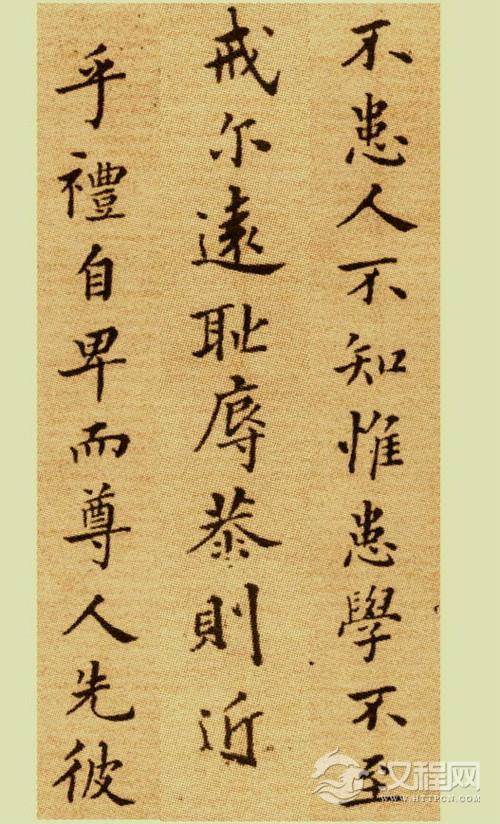 不患人不知惟患學不至
戒尔遠耻辱恭則近
乎禮自卑而尊人先彼
汉程网
WWW.HTTPCN.COM